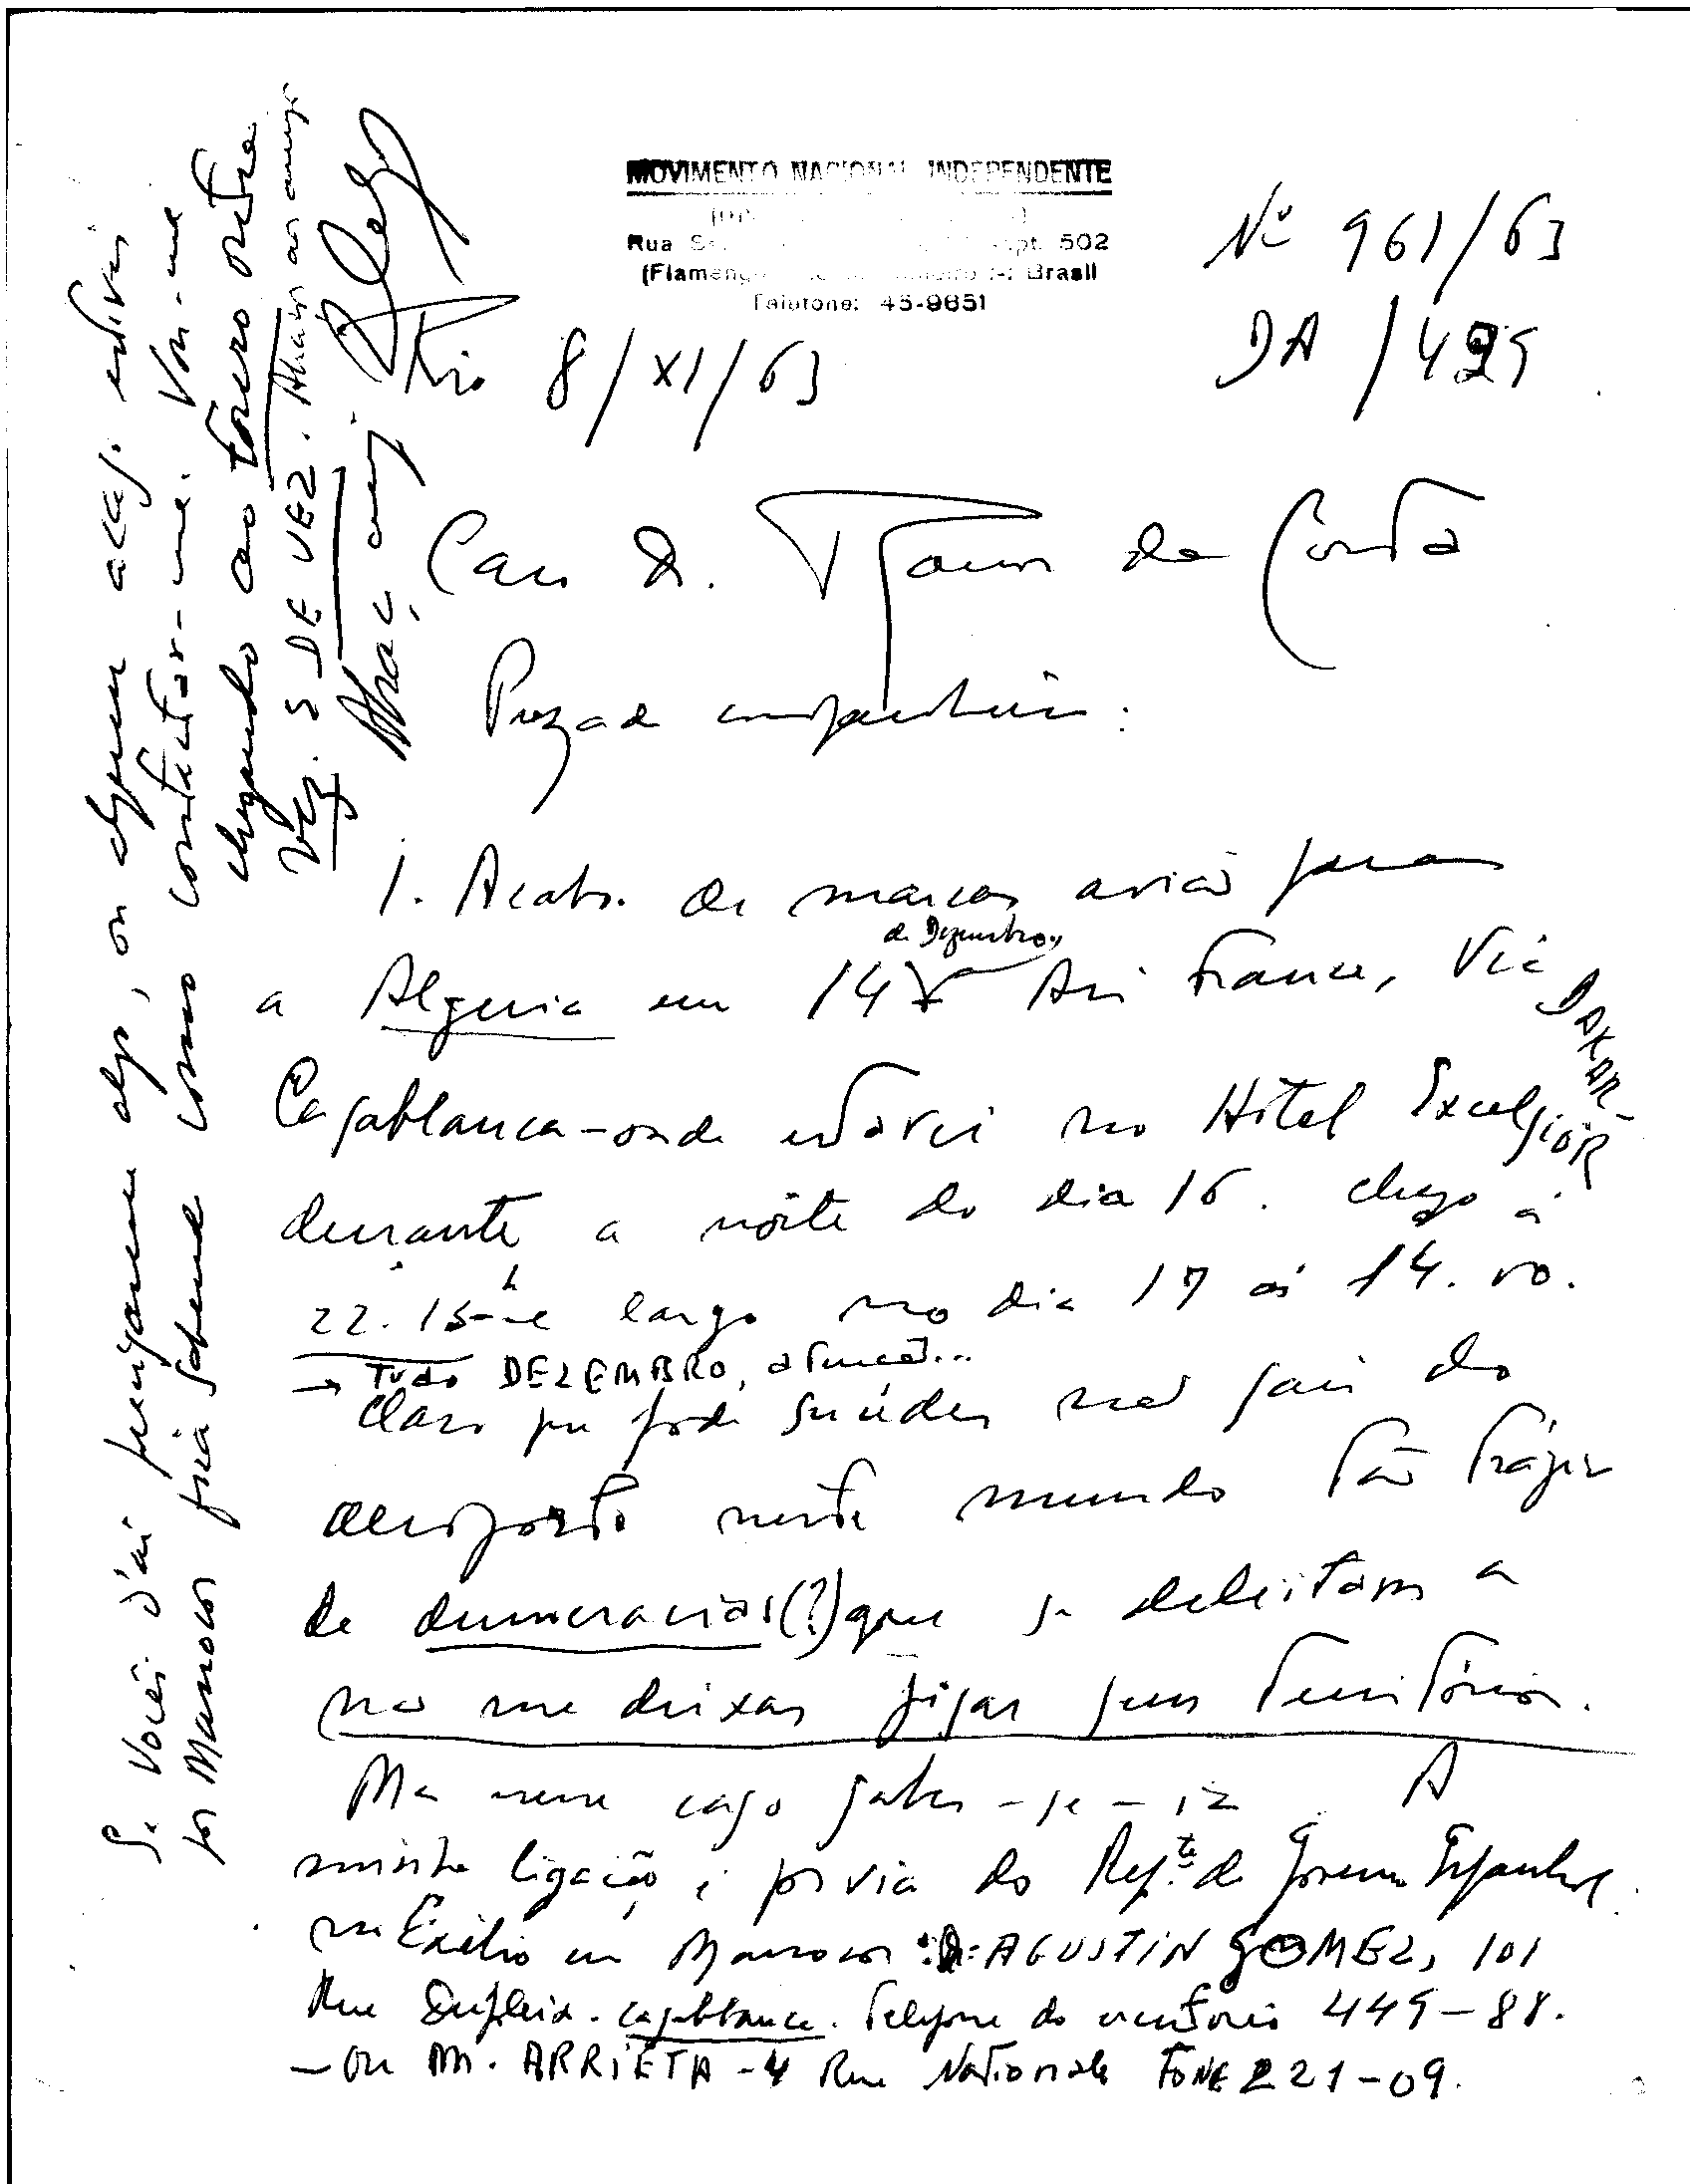 MOVIMENTO NACIONAL INDEPENDENTE
Rua apt. 502
(Flamengo Brasil
Telefone: 45-9651
Nº 961/63
DA /429
Rio 8/XI/63
Caro Dr. da Costa
Prezado companheiro:
1. Acabo de marcar avião para
a Algeria em 14 de Dezembro, Air France, Via DAKAR-
Casablanca - onde estarei no Hotel ExcelsiOR
durante a noite do dia 16. chego á
22.15 h e largo no dia 17 ás 14.00.
→ Tudo DEZEMBRO, atenção...
Claro que pode suceder não sair do
aeroporto neste mundo tão trágico
de democracias(?) que se deleitam a
não me deixar pisar seus territórios.
Ma nesse caso saber-se-ia A
minha ligação é por via do Rep.te do Governo Espanhol
no Exilio em Marrocos: AGUSTIN GOMEZ, 101
Rue . Casablanca. Telefone do escritorio 449-88.
- Ou M. ARRIETA - 4 Rue Nationale FONE 221-09.
Se Vocês d'ai precisarem algo, ou alguem acaso estiver
por Marrocos fica sabendo como contactar-me. Vou-me
chegando ao Touro outra
Vez. E DE VEZ. Abraços ao amigo
Abraç amig